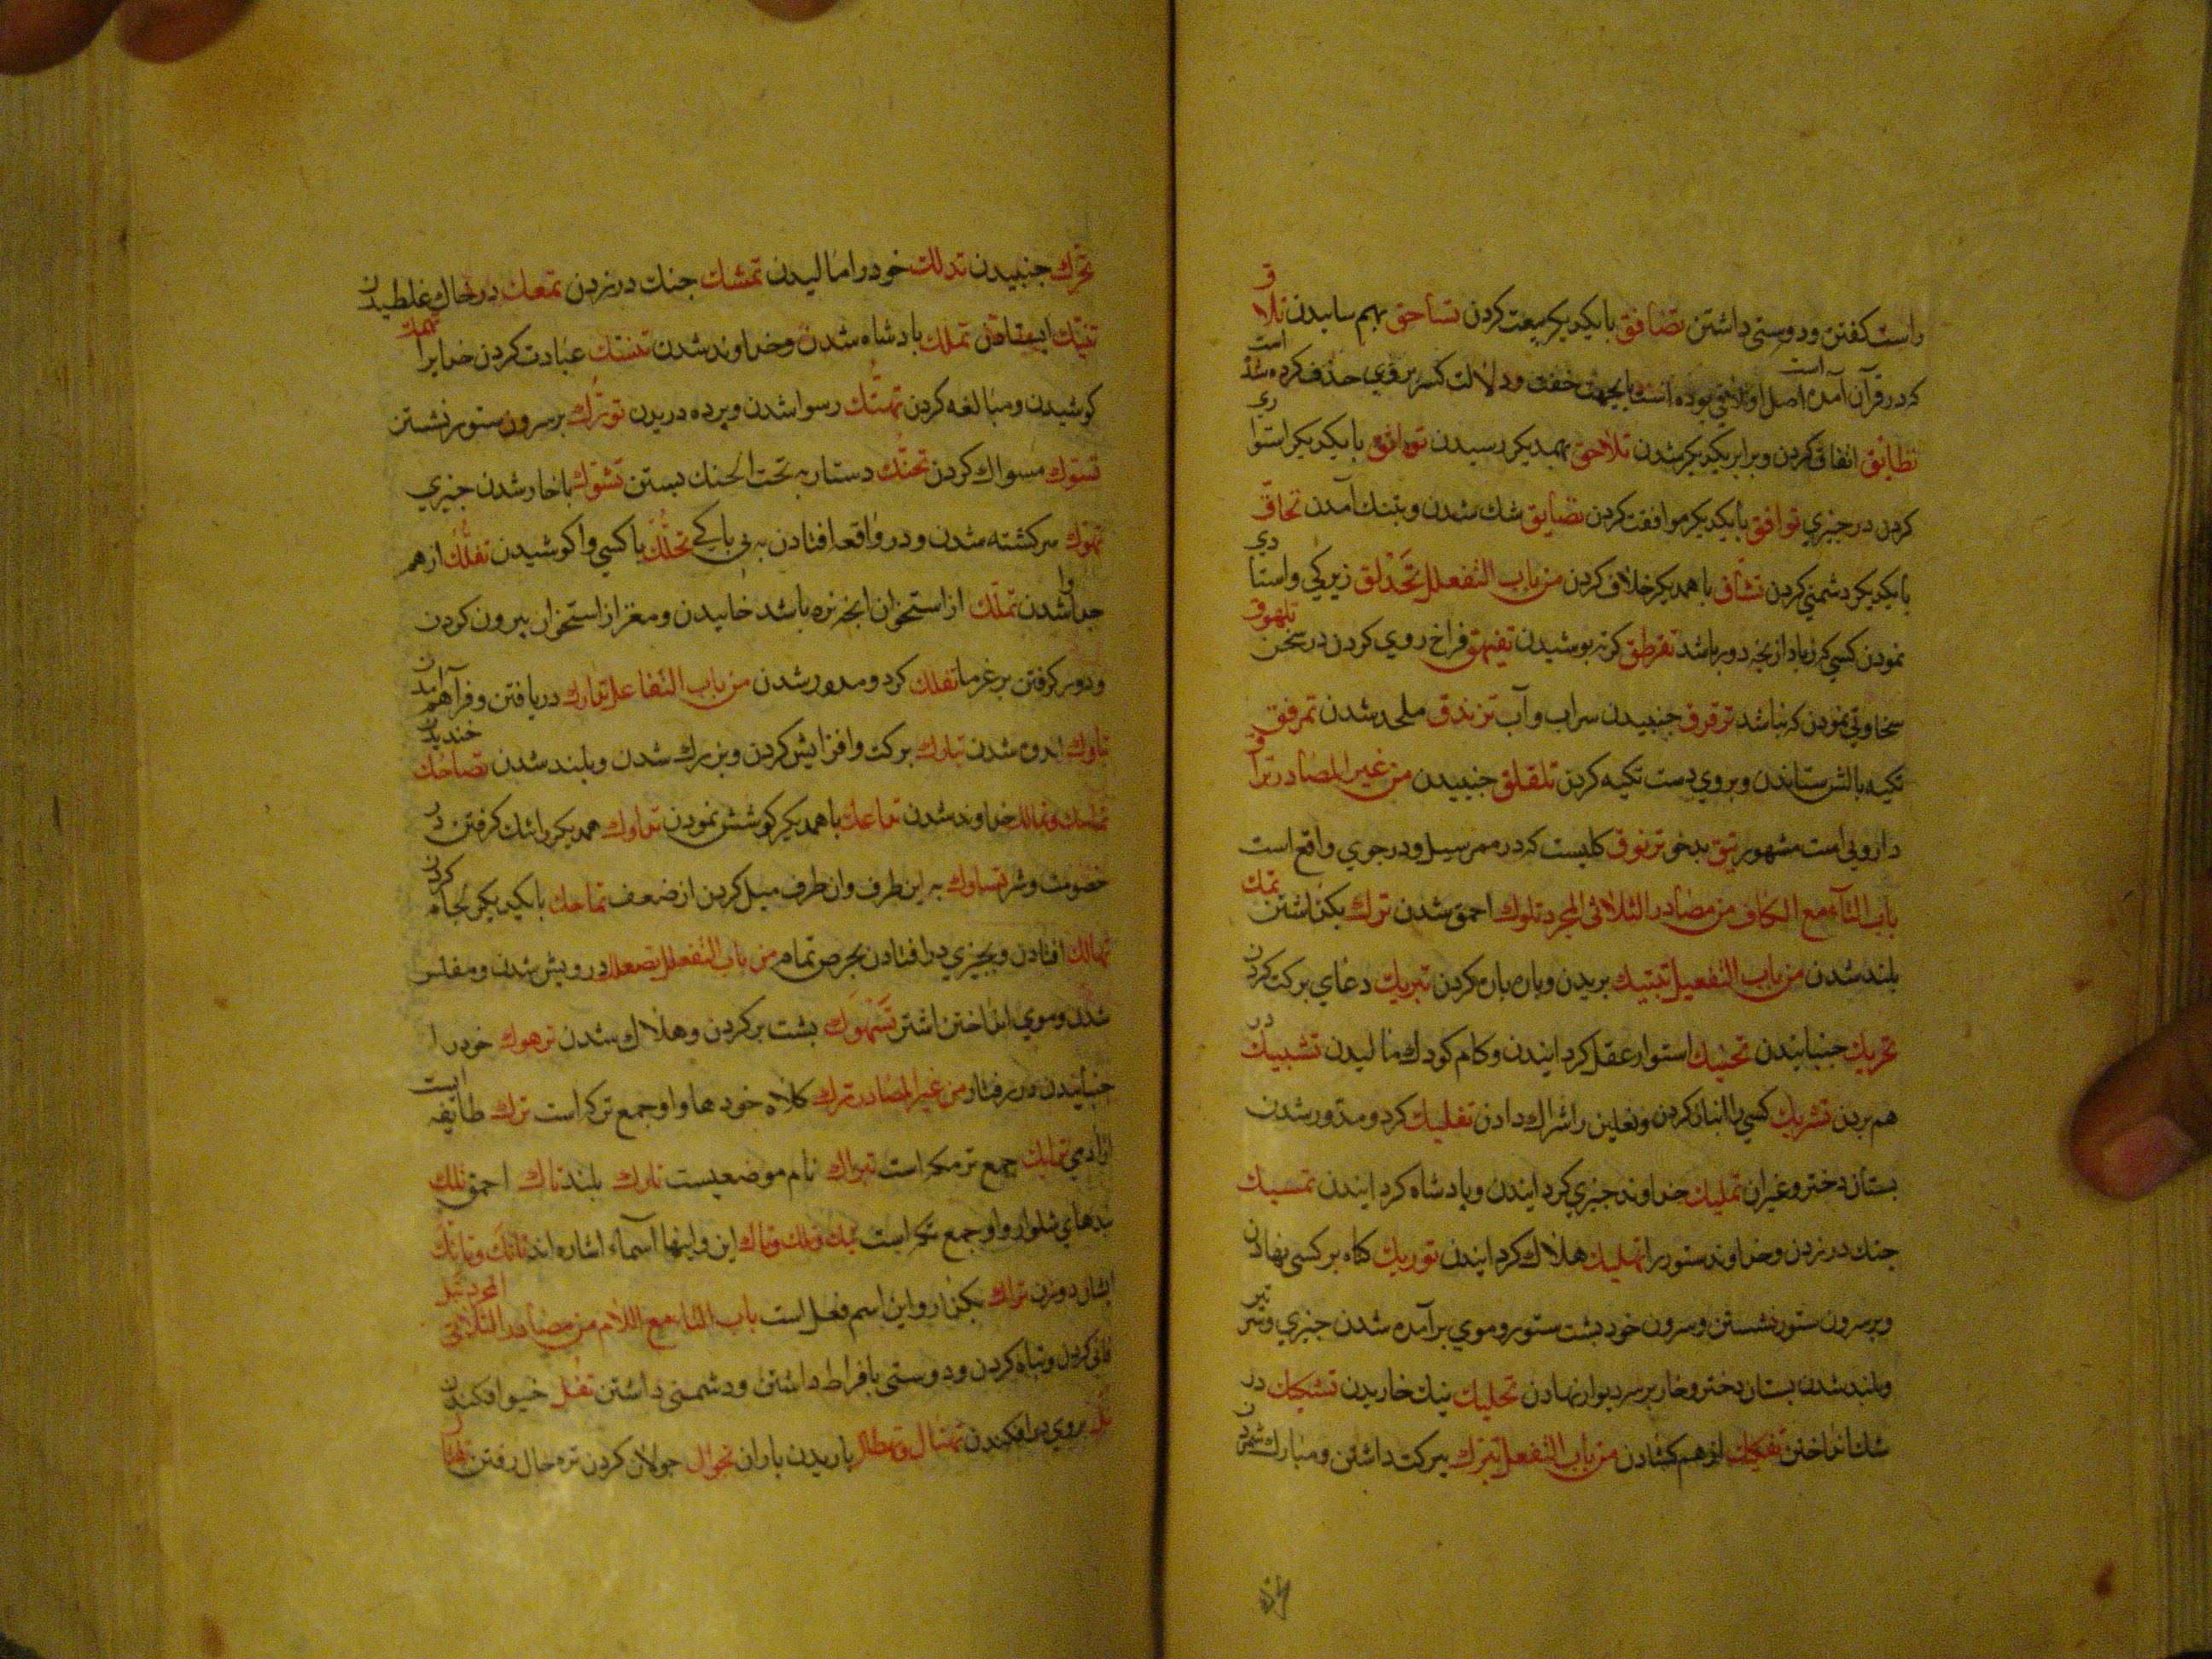 راست کفتن ودوستی داشتن تصافق بایکدیکر بیعت کردن تساحق بهم ساییدن تلاق
که در قرآن آمده است اصل او تلاقی بوده است بجهت خفت ودلالت کسر بروی حذف کرده شد است
تطابق اتفاق کردن وبرابر یکدیکر شدن تلاحق بهمدیکر رسیدن توافق بایکدیکر استواری
کردن در چیزی توافق بایکدیکر موافقت کردن تضایق تنك شدن وبتنك آمدن تحاق
بایکدیکر دشمنی کردن تشاق باهمدیکر خلاف کردن من باب التفعلل تحذلق زیرکی واستادی
نمودن کسی که زیاد ازنچه دور باشد تقرطق کرته پوشیدن تفیهق فراخ روی کردن در سخن تلهوق
سخاوتی نمودن که نباشد ترقرق جنبیدن سراب وآب تزندق ملحد شدن تمرفق
تکیه بالش ستاندن وبروی دست تکیه کردن تلقلق جنبیدن من غیر المصادر
دارویی است مشهور تیق بدخو ترنوق کلیست که در ممر سیل ودر جوی واقع است
باب التآء مع الکاف من مصادر الثلاثی المجرد تلوك احمق شدن ترك بکذاشتن تمك
بلند شدن من باب التفعیل تبتیك بریدن وپاره پاره کردن تبریك دعای برکت کردن
تحریك جنبانیدن تحنیك استوار عقل کردانیدن وکام کودك مالیدن تشبیك در
هم بردن تشریك کسی را انباز کردن ونعلین را شراك دادن تفلیك کرد ومدور شدن
پستان دختر وغیران تملیك خداوند چیزی کردانیدن وپادشاه کردانیدن تمسیك
چنك در زدن وخداوند ستور را تهلیك هلاك کردانیدن توریك کناه بر کسی نهادن
وبرسرون ستور نشستن وسرون خود بشت ستور وموی برآمده شدن چیزی
وبلند شدن پستان دختر وخار برسر دیوار نهادن تحلیك نیك خاریدن تشکیك در
شك انداختن تفکیك از هم کشادن من باب التفعل تبرك ببرکت داشتن ومبارك شمردن
تحرك جنبیدن تدلك خود را مالیدن تمسك چنك در زدن تمعك در خاك غلطیدن
تملك پادشاه شدن وخداوند شدن تنسك عبادت کردن خدایرا تهمك
کوشیدن ومبالغه کردن تهتك رسوا شدن وپرده دریدن تورك برسرون ستور نشستن
تسوك مسواك کردن تحنك دستار به تحت الحنك بستن تشوك باخار شدن چیزی
تهوك سرکشته شدن ودر واقعه افتادن به بی باکی باکسی واکوشیدن تفکك از هم
جدا شدن تملك از استخوان انچه نره باشد خاییدن ومغز از استخوان بیرون کردن
ودور کرفتن بر غرما تفلك کرد ومدور شدن من باب التفاعل تدارك دریافتن وفراهم آمدن
شدن تبارك برکت وافزایش کردن وبزرك شدن وبلند شدن تضاحك خندیدن
تماسك وتمالك خداوند شدن تداعك باهمدیکر کوشش نمودن تداوك همدیکر را تنك کرفتن در
خصومت وشر تساوك به این طرف وان طرف میل کردن از ضعف تماحك بایکدیکر لجاج کردن
تهالك افتادن وبچیزی در افتادن بحرص تمام من باب التفعلل تصعلك درویش شدن ومفلس
شدن وموی انداختن اشتر تسهوك پشت بر کردن وهلاك شدن ترهوك خود را
جنبانیدن در رفتار من غیر المصادر ترك کلاه خودها واو جمع ترکه است ترك طایفه ایست
از آدمی جمع ترمکه است تبراك نام موضعیست تامك بلند تاك احمق تکك
بندهای شلوار واو جمع تکه است تیك وتلك وتاك این واینها اسماء اشاره اند تانك وتانك
ایشان دو زن تراك بکذار واین اسم فعل است باب التاء مع اللام من مصادر الثلاثی المجرد تبل
فانی کردن وتباه کردن ودوستی بافراط داشتن ودشمنی داشتن تفل خیو افکندن
تل بروی در افکندن تهتال وتهطال باریدن باران تجوال جولان کردن تره خال رفتن